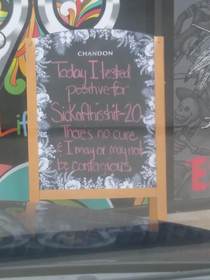 CHANDON
Today I tested
positive for
Sickofthisshit-20
Theres no cure
& I may or may not
be contagious
Life
E